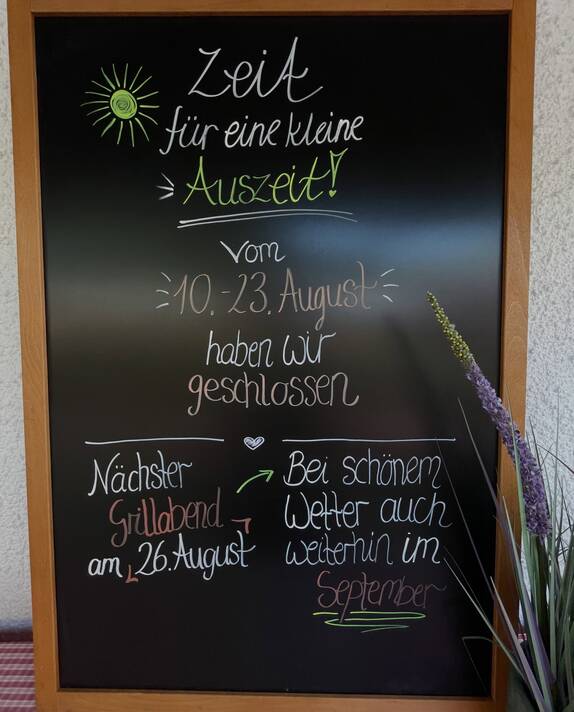 Zeit
für eine kleine
Auszeit!
Vom
10.-23. August
haben wir
geschlossen
Nächster
Grillabend
am 26. August
Bei schönem
Wetter auch
weiterhin im
September